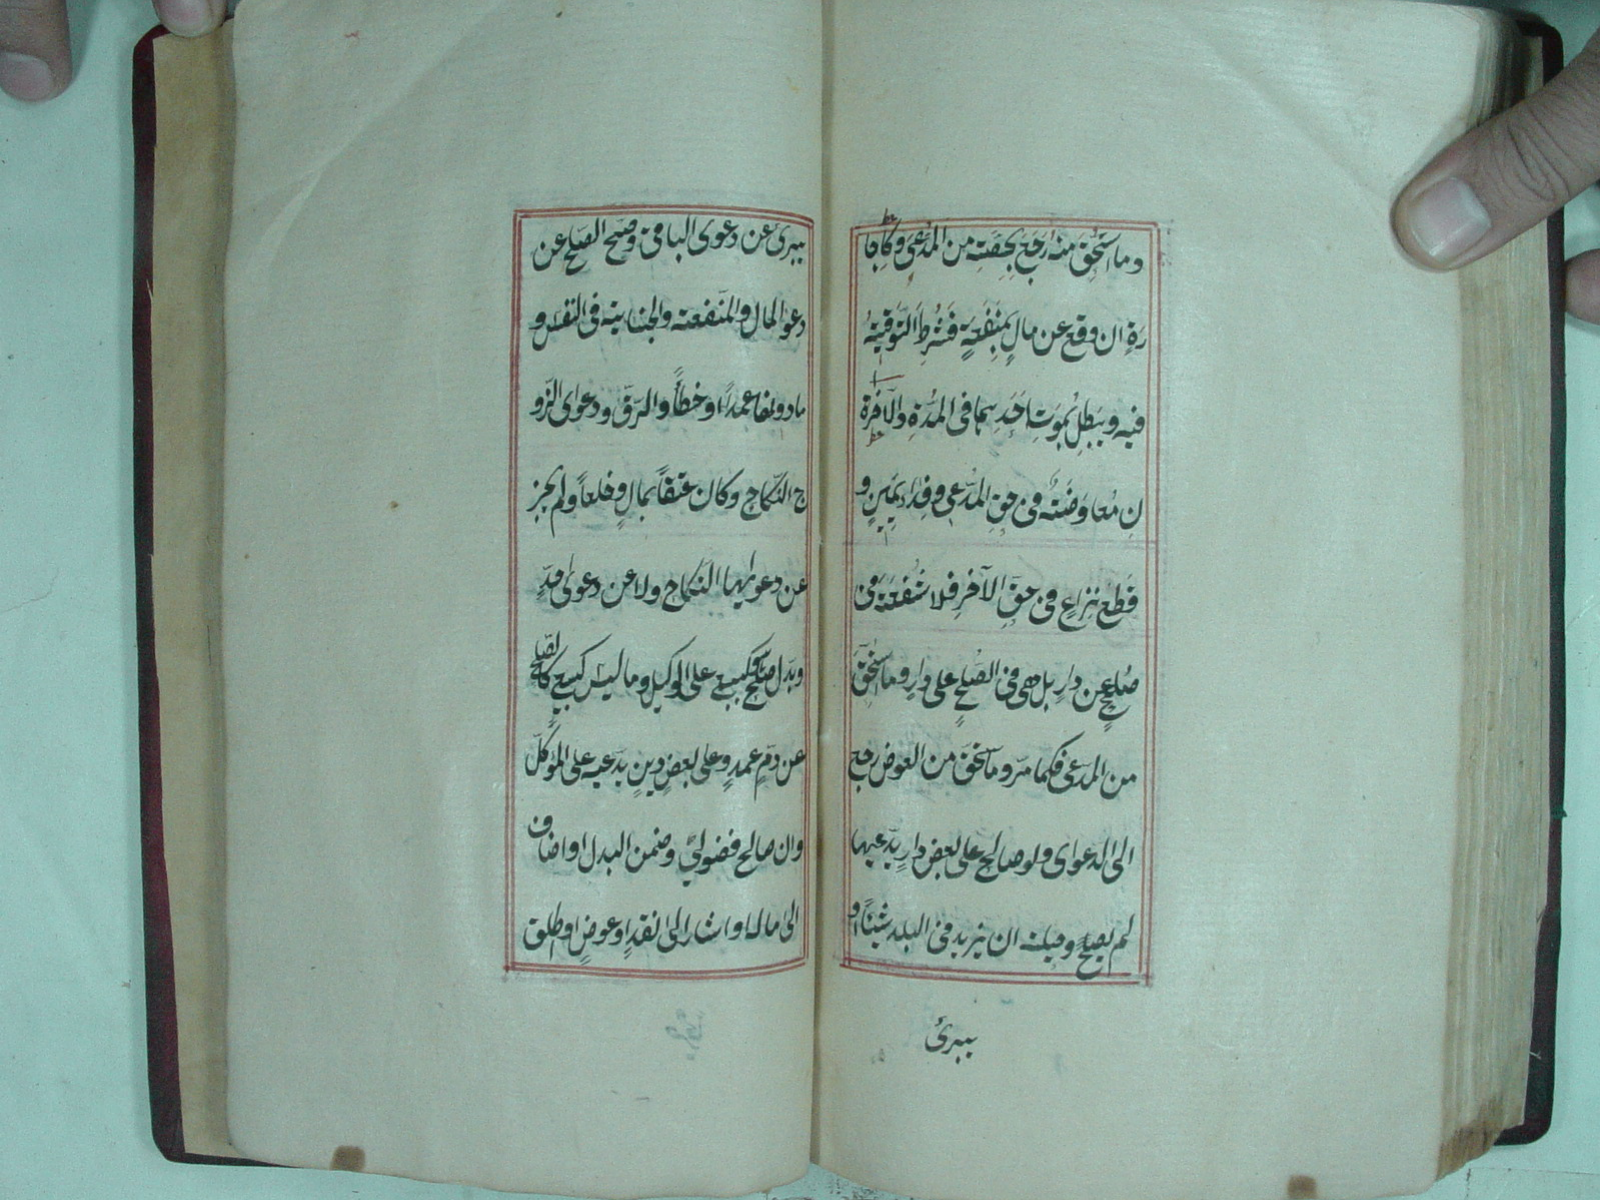 وما استحق منه رجع بحصته من المدعي وكاجا
رة ان وقع عن مال بمنفعة فشرط التوقيت
فيه ويبطل بموت احدهما في المدة والآخرة
ن معاوضة في حق المدعي وفداء يمين و
قطع نزاع في حق الآخر فلا شفعة في
صلح عن دار بل هي في الصلح على دار وما استحق
من المدعى فكما مر وما استحق من العوض رجع
الى الدعوى ولو صالح على بعض دار يدعيها
لم يصح وحيلته ان يزيد في البدل شيئا او
يبرئ
يبرئ عن دعوى الباقي وصح الصلح عن
دعوا المال والمنفعة والجناية في النفس و
ما دونها عمدا او خطأ والرق ودعوى الزو
ج النكاح وكان عتقا بمال وخلعا ولم يجز
عن دعواها النكاح ولا عن دعوى حد
وبدل صلح هو كبيع على الوكيل وما ليس كبيع كالصلح
عن دم عمد وعلى بعض دين يدعيه على الموكل
وان صالح فضولي وضمن البدل او اضاف
الى ماله او اشار الى نقد او عوض او طلق